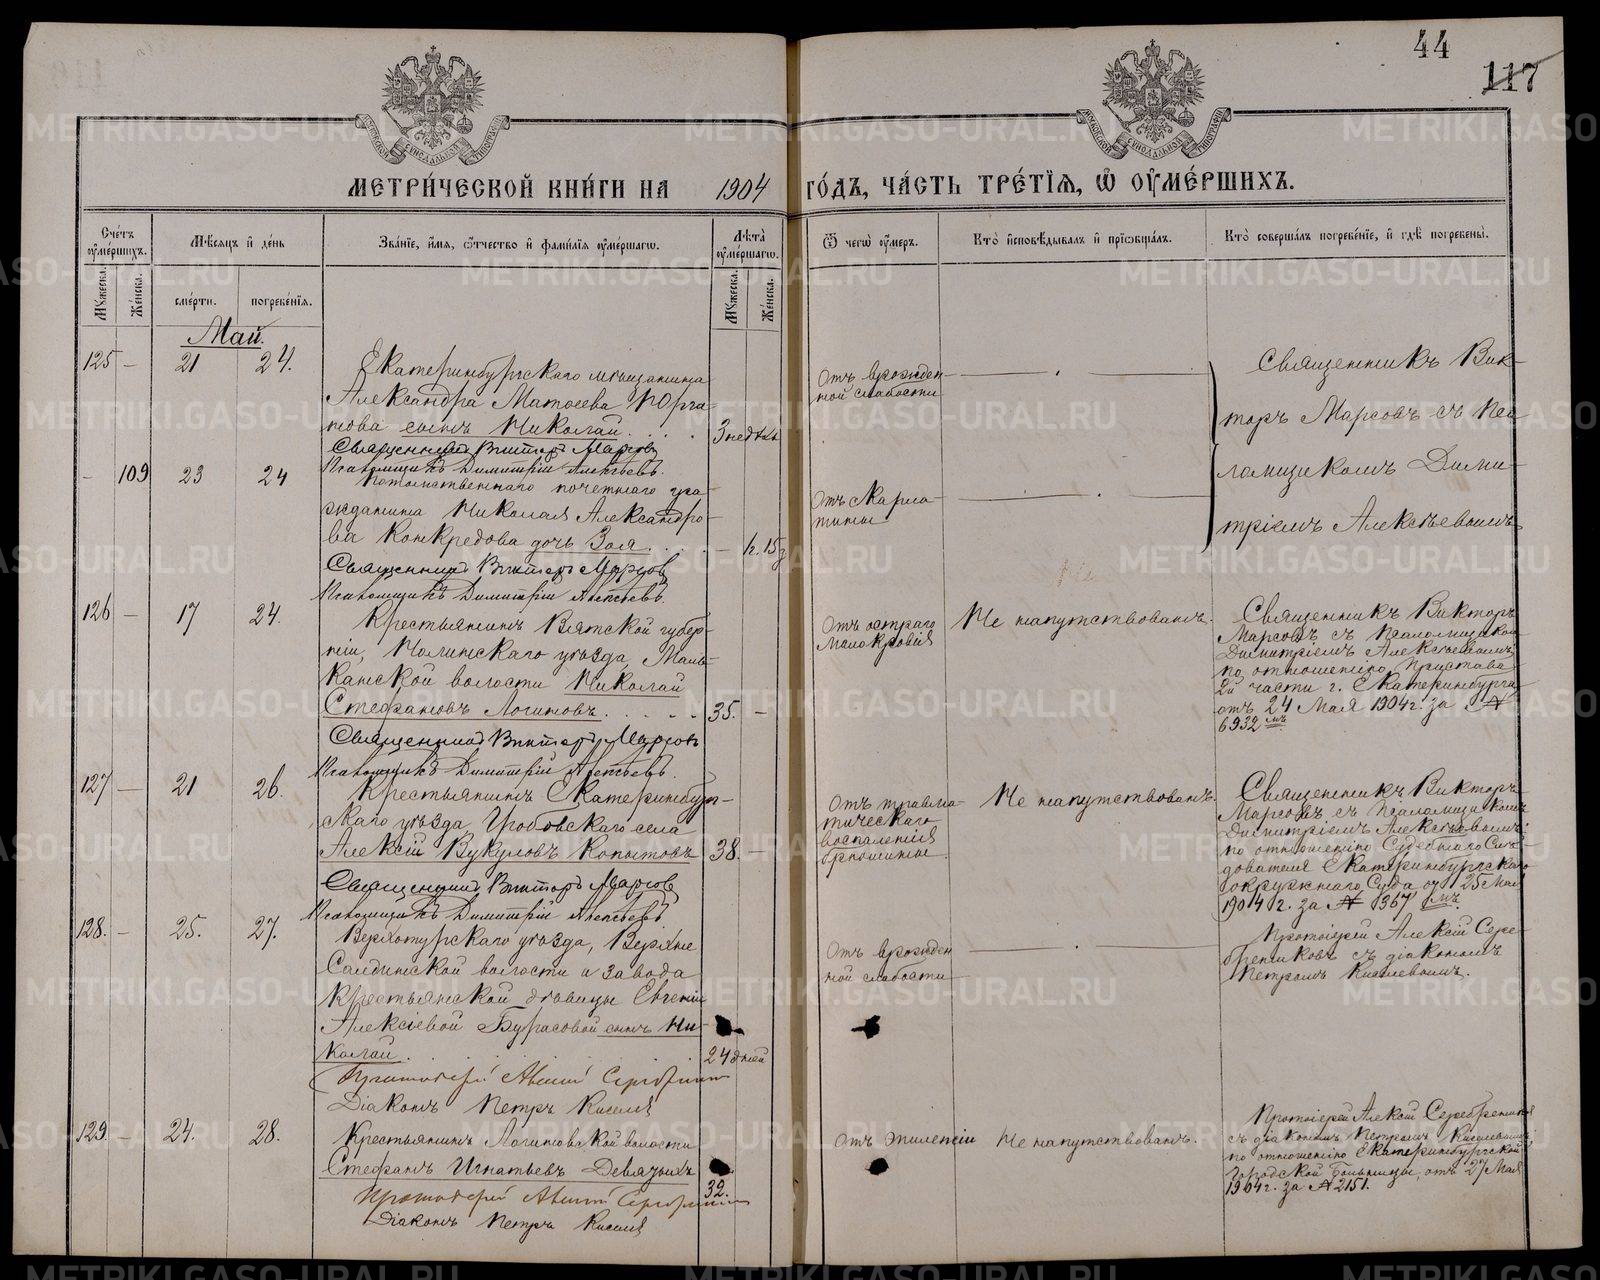 44
117
МЕТРИ́ЧЕСКОЙ КНИ́ГИ НА 1904 ГО́ДЪ, ЧА́СТЬ ТРЕ́ТЇѦ, Ѿ ОУ҆МЕ́РШИХЪ.
Сче́тъ оу҆ме́ршихъ.
Мѣ́сяцъ и҆ де́нь
Зва́нїе, и҆́мѧ, ѻ҆́тчество и҆ фами́лїѧ оу҆ме́ршагѡ.
Лѣта̀ оу҆ме́ршагѡ.
Ѿ чегѡ̀ оу҆́меръ.
Кто̀ и҆сповѣ́дывалъ и҆ прїѡбща́лъ.
Кто̀ соверша́лъ погребе́нїе, и҆ гдѣ̀ погребены̀.
Мꙋ́жеска.
Же́нска.
сме́рти.
погребе́нїѧ.
Мꙋ́жеска.
Же́нска.
Май.
125 — 21 24.
Екатеринбургскаго мѣщанина
Александра Матѳеева
сынъ Николай . . . 3 недѣль
Священникъ Викторъ Марсовъ
Псаломщикъ Димитрій Алексѣевъ.
Отъ врожден-
ной слабости
Священникъ Вик-
торъ Марсовъ съ пса-
ломщикомъ Дими-
тріемъ Алексѣевымъ
- 109 23 24
Потомственнаго почетнаго гра-
жданина Николая Александро-
ва Конкредова дочь Зоя . . . —
Священникъ Викторъ Марсовъ
Псаломщикъ Димитрій Алексѣевъ.
Отъ скарла-
тины
126 — 17 24.
Крестьянинъ Вятской губер-
ніи, Нолинскаго уѣзда,
волости Николай
Стефановъ Логиновъ . . . . 35. —
Священникъ Викторъ Марсовъ
Псаломщикъ Димитрій Алексѣевъ.
Отъ остраго
малокровія
Не напутствованъ.
Священникъ Викторъ
Марсовъ съ псаломщикомъ
Димитріемъ Алексѣевымъ
по отношенію Пристава
2й части г. Екатеринбурга
отъ 24 Мая 1904 г. за №
6932 мъ
127 — 21 26.
Крестьянинъ Екатеринбург-
скаго уѣзда, Гробовскаго села
Алексій Вукуловъ Копытовъ 38. —
Священникъ Викторъ Марсовъ
Псаломщикъ Димитрій Алексѣевъ
Отъ травма-
тическаго
воспаленія
брюшины
Не напутствованъ.
Священникъ Викторъ
Марсовъ съ псаломщикомъ
Димитріемъ Алексѣевымъ
по отношенію Судебнаго Слѣ-
дователя Екатеринбургскаго
окружнаго Суда отъ 25 Мая
1904 г. за № 1367 мъ.
128. — 25. 27.
Верхотурскаго уѣзда, Верхне
Салдинской волости и завода
крестьянской дѣвицы Евгеніи
Алексіевой Бурасовой сынъ Ни-
колай. 24 дней
Протоіерей Алексій Серебренниковъ
Діаконъ Петръ Киселевъ
Отъ врожден
ной слабости
Протоіерей Алексій Сере-
бренниковъ съ діакономъ
Петромъ Киселевымъ.
129. — 24. 28.
Крестьянинъ Логиновской волости
Стефанъ Игнатьевъ Девятыхъ 32.
Протоіерей Алексій Серебренниковъ
Діаконъ Петръ Киселевъ
Отъ эпилепсіи
Не напутствованъ.
Протоіерей Алексій Серебренниковъ
съ діакономъ Петромъ Киселевымъ,
по отношенію Екатеринбургской
Городской Больницы, отъ 27 Мая
1904 г. за № 2151.